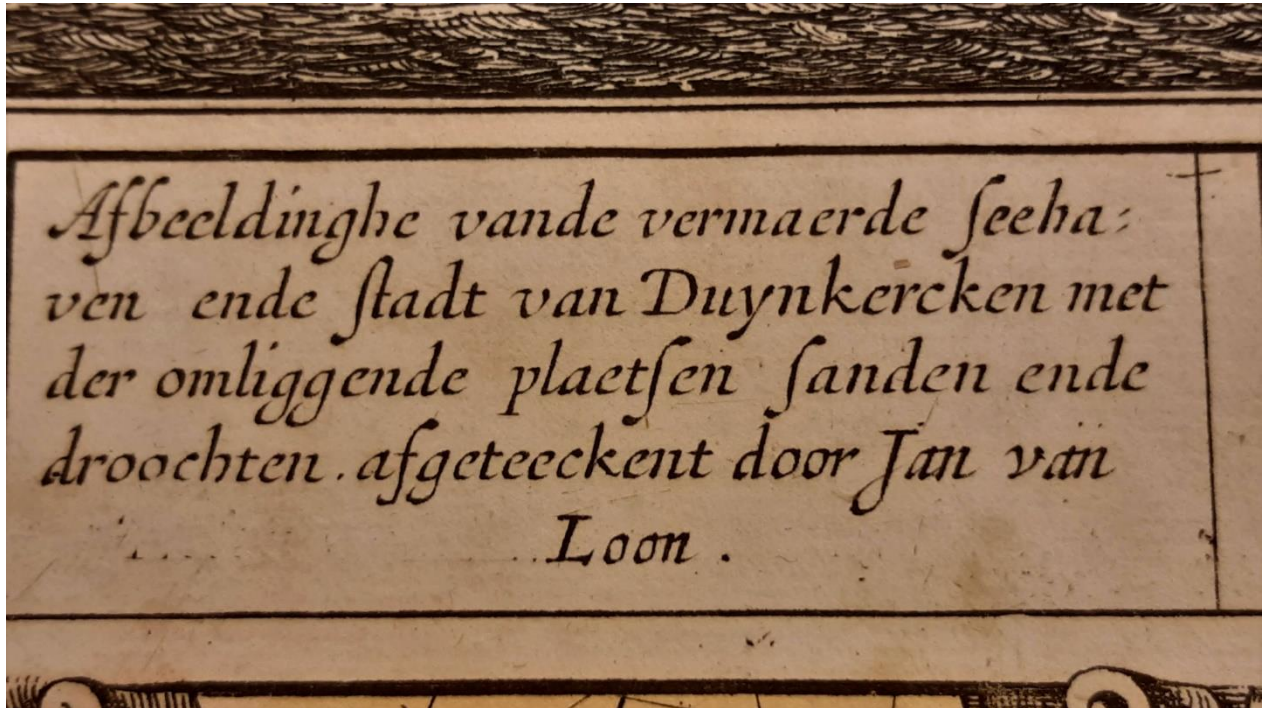 Afbeeldinghe vande vermaerde ſeeha⸗
ven ende ſtadt van Duynkercken met
der omliggende plaetſen ſanden ende
droochten . afgeteeckent door Jan van
Loon .